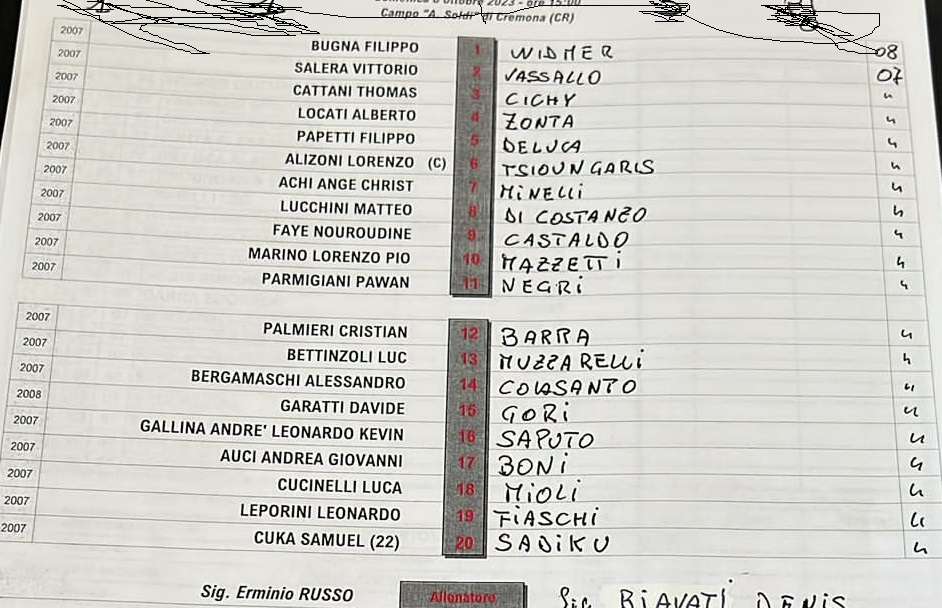 ottobre 2023 - ore 15:00
Campo "A. Soldi" di Cremona (CR)
2007
2007 BUGNA FILIPPO 1 WIDMER 08
2007 SALERA VITTORIO 2 VASSALLO 07
2007 CATTANI THOMAS 3 CICHY "
2007 LOCATI ALBERTO 4 ZONTA "
2007 PAPETTI FILIPPO 5 DELUCA "
2007 ALIZONI LORENZO (C) 6 TSIOUNGARIS "
2007 ACHI ANGE CHRIST 7 MINELLI "
2007 LUCCHINI MATTEO 8 DI COSTANZO "
2007 FAYE NOUROUDINE 9 CASTALDO "
2007 MARINO LORENZO PIO 10 MAZZETTI "
2007 PARMIGIANI PAWAN 11 NEGRI "
2007 PALMIERI CRISTIAN 12 BARRA "
2007 BETTINZOLI LUC 13 MUZZARELLI "
2007 BERGAMASCHI ALESSANDRO 14 COLASANTO "
2008 GARATTI DAVIDE 15 GORI "
2007 GALLINA ANDRE' LEONARDO KEVIN 16 SAPUTO "
2007 AUCI ANDREA GIOVANNI 17 BONI "
2007 CUCINELLI LUCA 18 MIOLI "
2007 LEPORINI LEONARDO 19 FIASCHI "
2007 CUKA SAMUEL (22) 20 SADIKU "
Sig. Erminio RUSSO Allenatore Sig. BIAVATI DENIS